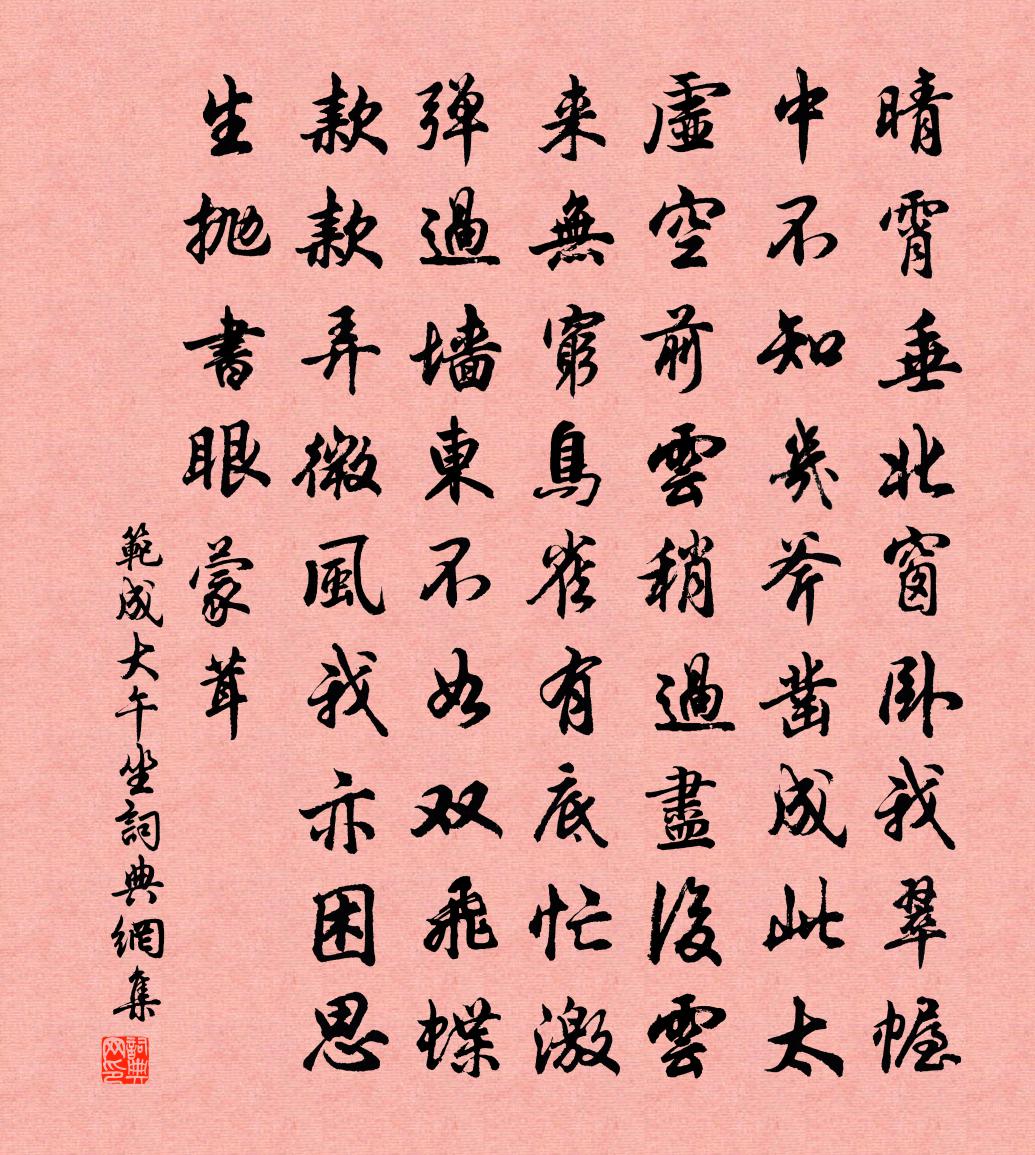 晴霄垂北窗卧我翠幄
中不知幾斧凿成此太
虛空前雲稍過盡後雲
来無窮鳥雀有底忙激
弹過墻東不如双飛蝶
款款弄微風我亦困思
生抛書眼蒙茸
範成大午坐詞典網集
詞典网印